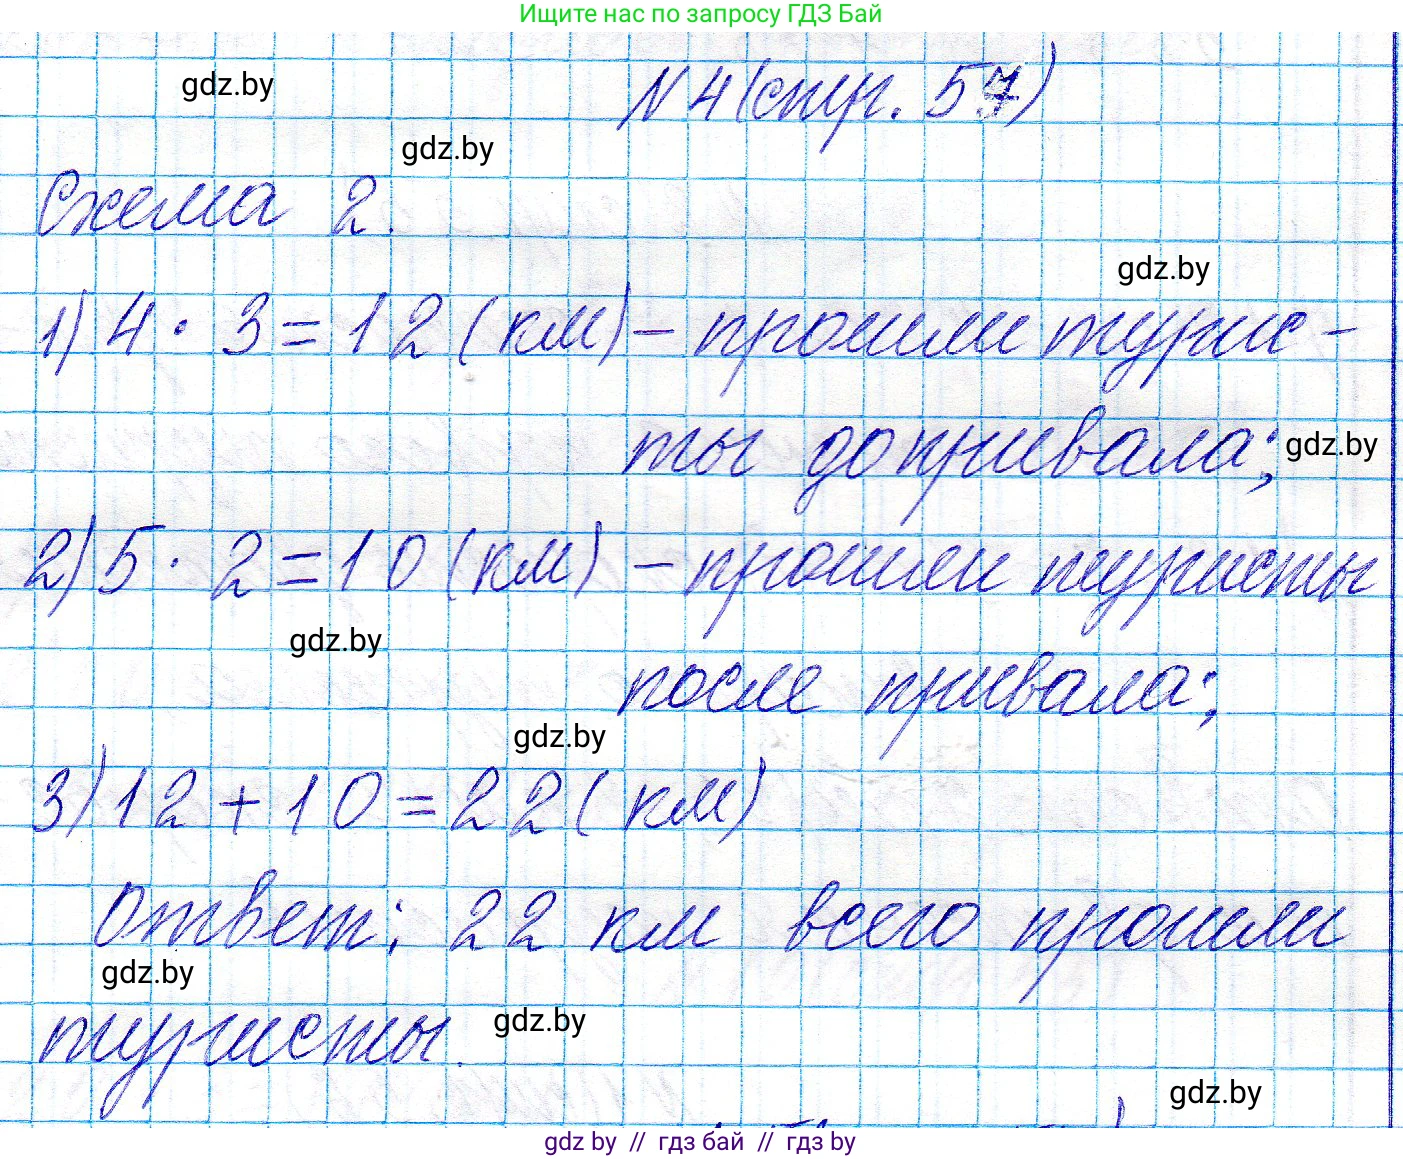 Ищите нас по запросу ГДЗ Бай
gdz.by
№4 (стр. 57)
gdz.by
Схема 2.
gdz.by
1) 4 · 3 = 12 (км) – прошли турис-
ты до привала; gdz.by
2) 5 · 2 = 10 (км) – прошли туристы
gdz.by
после привала;
gdz.by
3) 12 + 10 = 22 (км)
Ответ: 22 км всего прошли
gdz.by
туристы. gdz.by
gdz.by
gdz by // гдз бай // гдз by